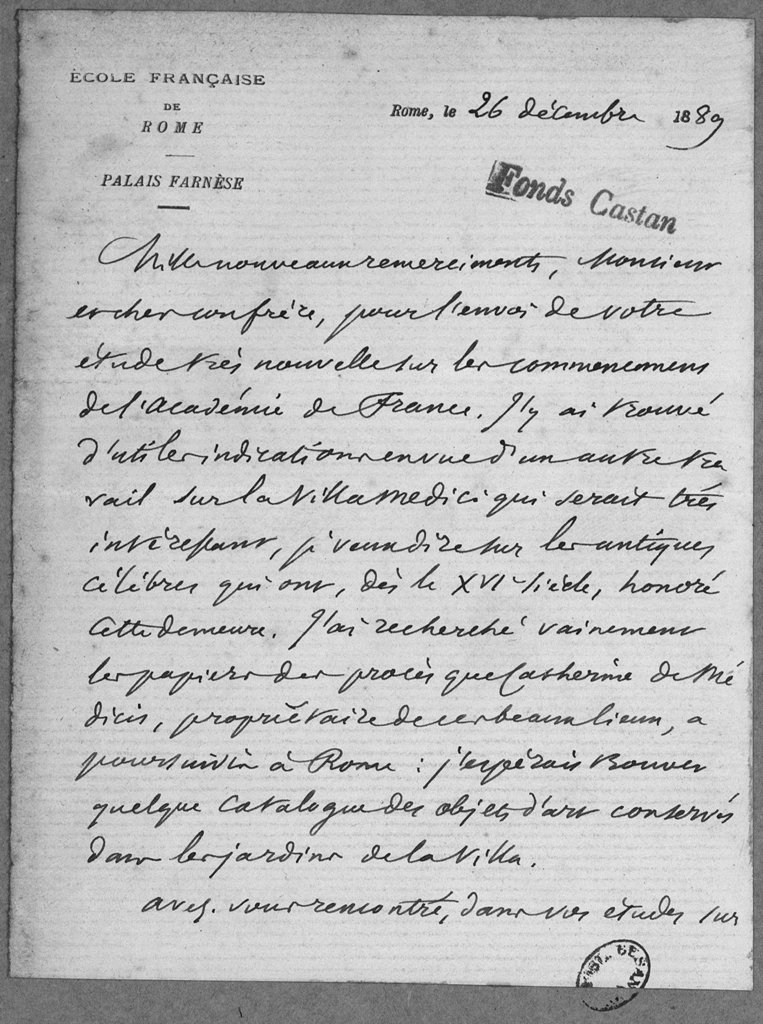 ÉCOLE FRANÇAISE
DE
ROME
PALAIS FARNÈSE
Rome, le 26 décembre 1889
Fonds Castan
Mille nouveaux remerciments, Monsieur
et cher confrère, pour l'envoi de votre
étude très nouvelle sur les commencemens
de l'Académie de France. J'y ai trouvé
d'utiles indications en vue d'un autre tra
vail sur la Villa Medici qui serait très
intéressant, je veux dire sur les antiques
célèbres qui ont, dès le XVIe siècle, honoré
cette demeure. J'ai recherché vainement
les papiers des procès que Catherine de Mé
dicis, propriétaire de ces beaux lieux, a
poursuivis à Rome : j'espérais trouver
quelque catalogue des objets d'art conservés
dans les jardins de la Villa.
avez-vous rencontré, dans vos études sur
BESAN